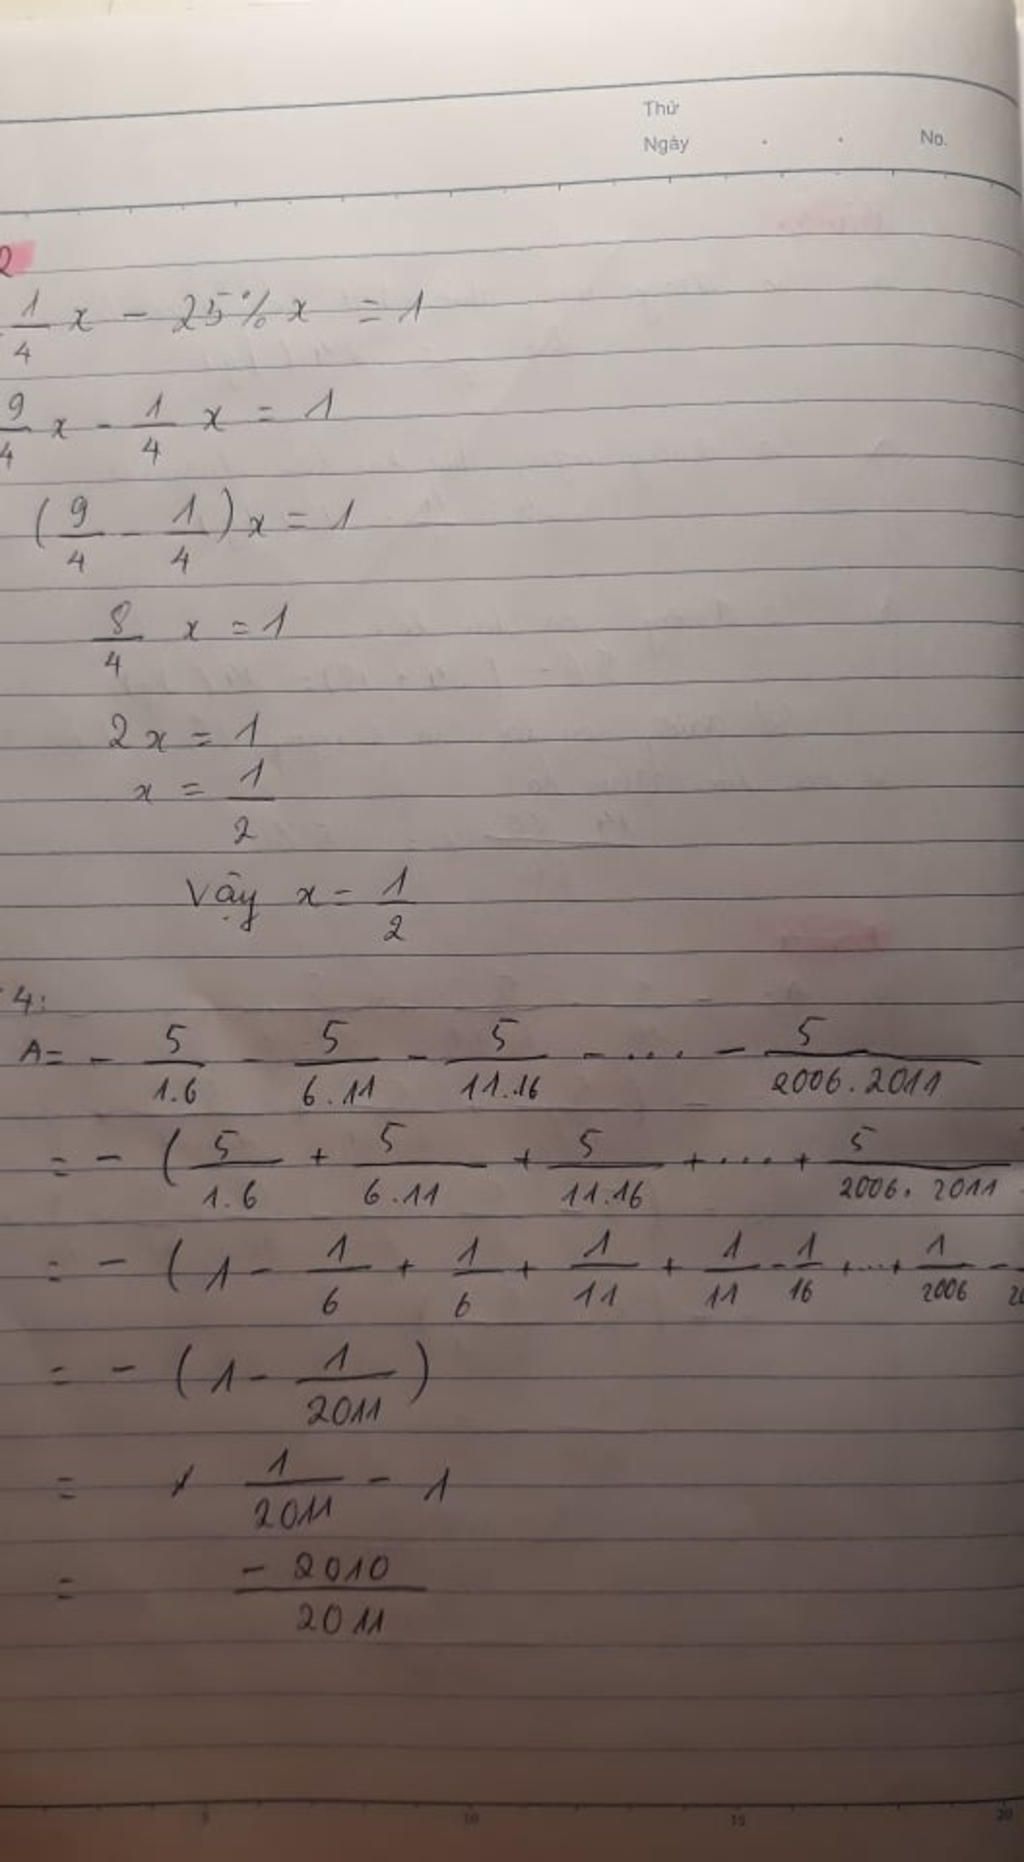 Thứ
Ngày . . No.
2
1/4 x - 25% x = 1
9/4 x - 1/4 x = 1
(9/4 - 1/4) x = 1
8/4 x = 1
2x = 1
x = 1/2
Vậy x = 1/2
4:
A = - 5/1.6 - 5/6.11 - 5/11.16 - .... - 5/2006.2011
= - ( 5/1.6 + 5/6.11 + 5/11.16 + .... + 5/2006.2011
= - ( 1 - 1/6 + 1/6 + 1/11 + 1/11 - 1/16 + ... + 1/2006 -
= - ( 1 - 1/2011 )
= 1/2011 - 1
= -2010/2011
5 10 15 20